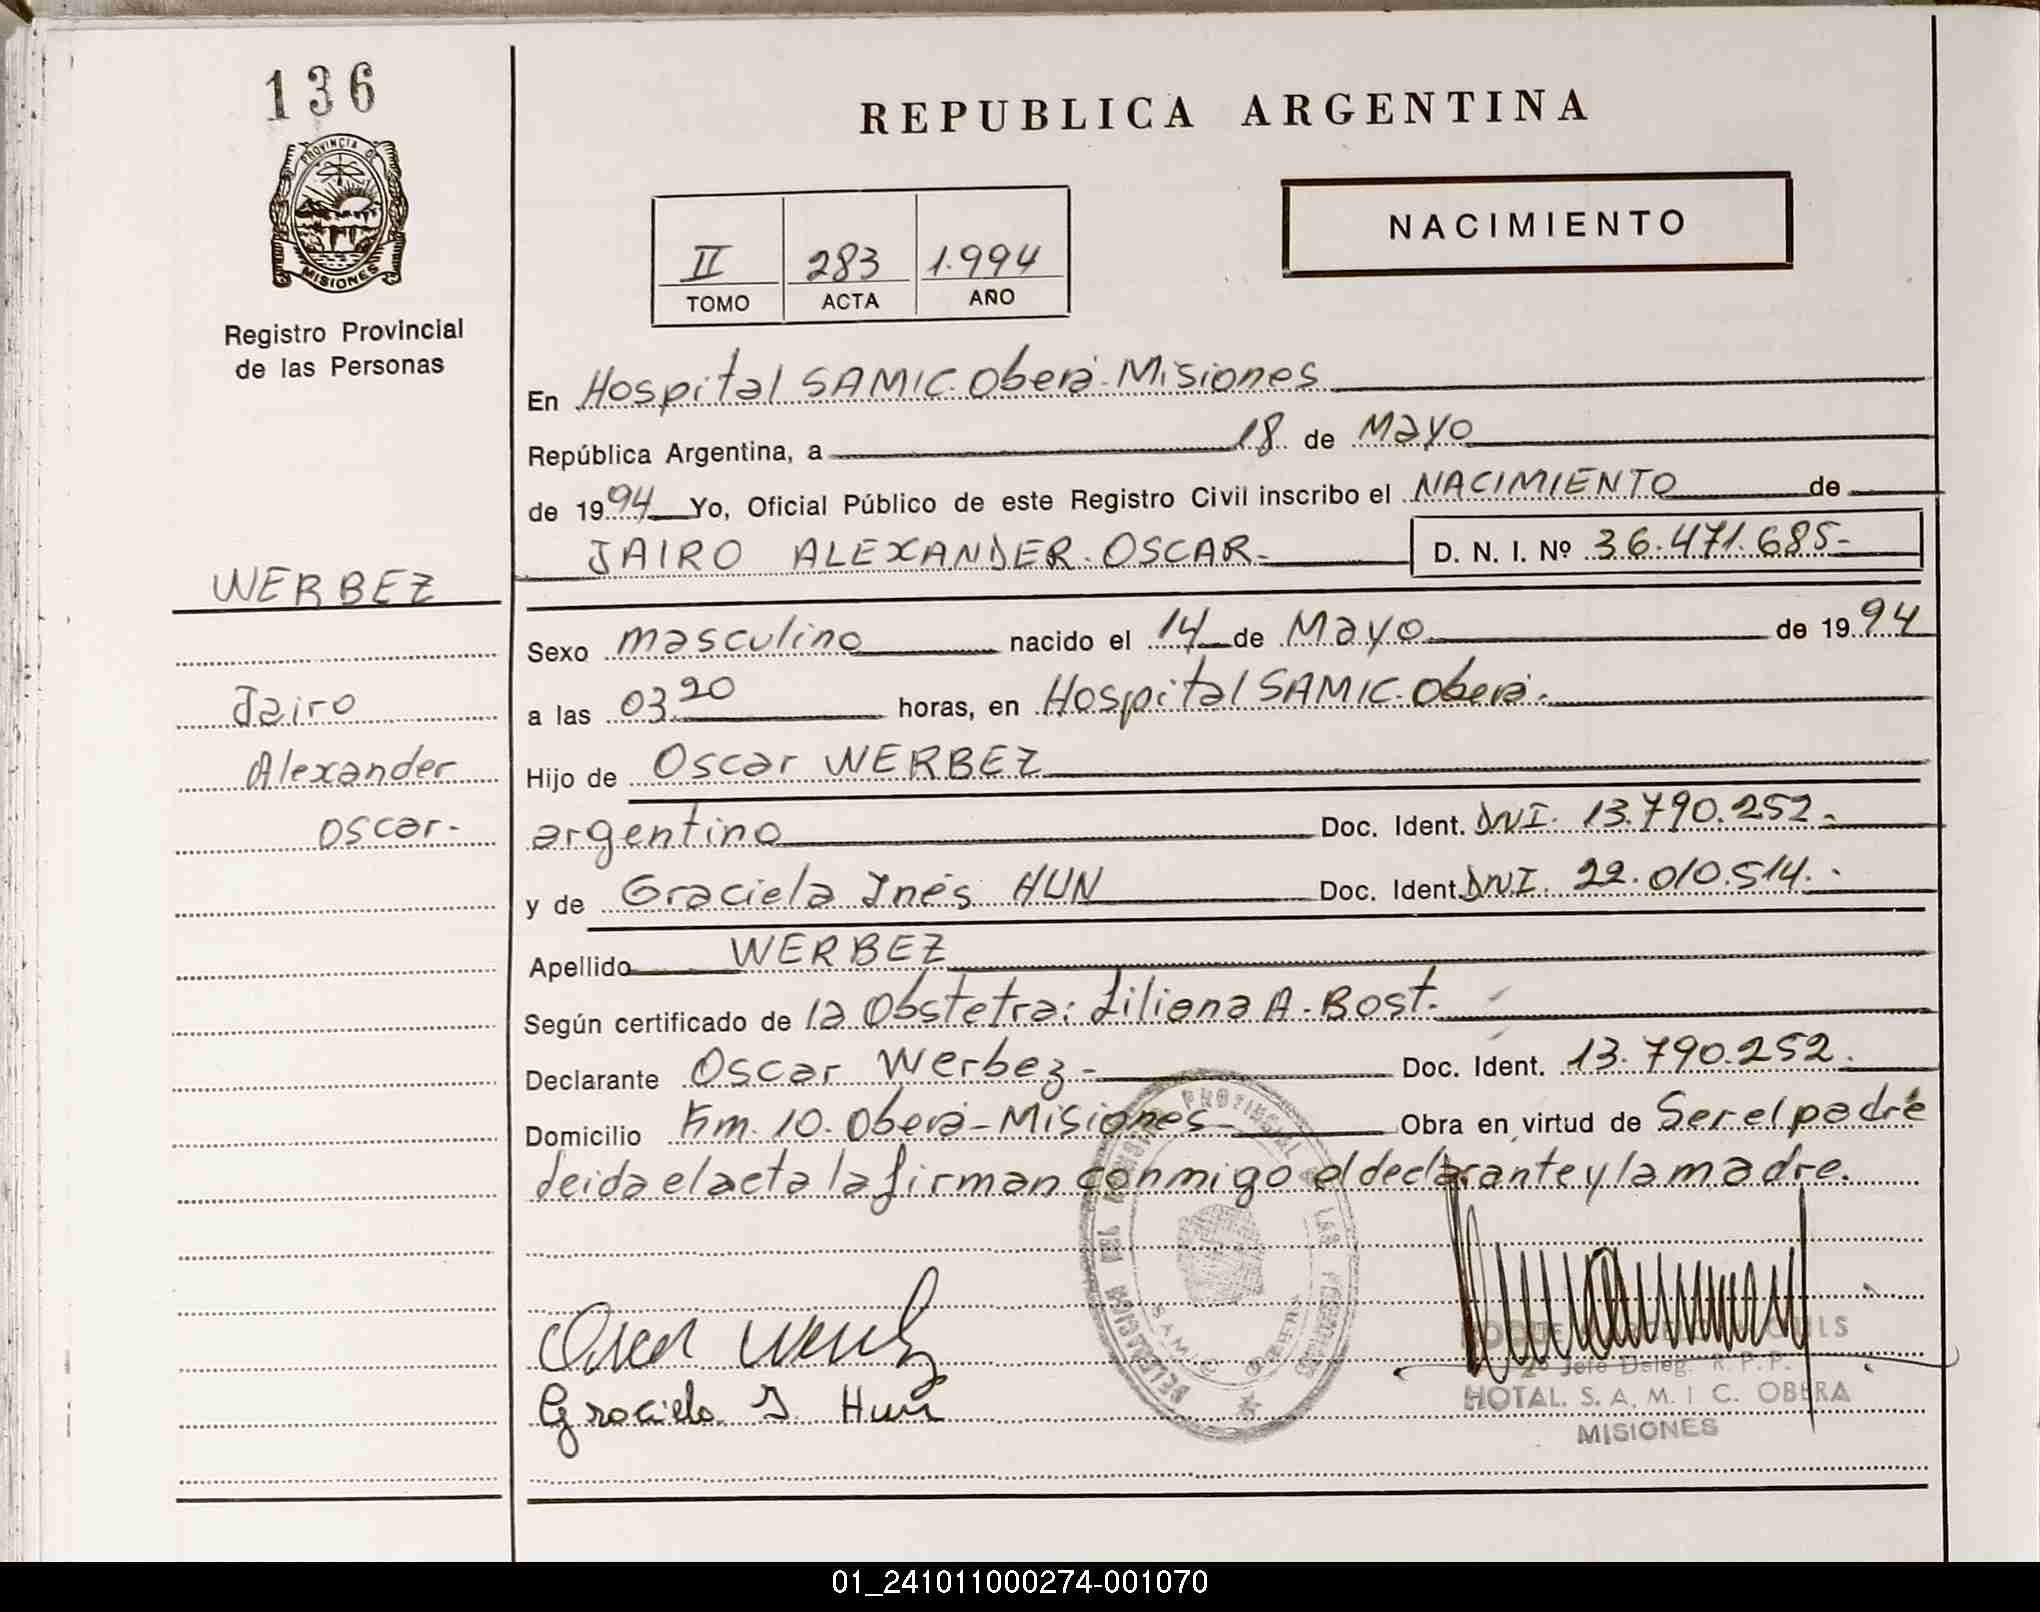 136
PROVINCIA DE
MISIONES
Registro Provincial
de las Personas
WERBEZ
Jairo
Alexander
Oscar.-
REPUBLICA ARGENTINA
NACIMIENTO
II 283 1.994
TOMO ACTA AÑO
En Hospital SAMIC. Oberá - Misiones
República Argentina, a 18 de Mayo
de 1994 Yo, Oficial Público de este Registro Civil inscribo el NACIMIENTO de
JAIRO ALEXANDER OSCAR.- D. N. I. Nº 36.471.685-
Sexo masculino nacido el 14 de Mayo de 1994
a las 03.20 horas, en Hospital SAMIC. Oberá.
Hijo de Oscar WERBEZ
argentino Doc. Ident. DNI. 13.790.252.-
y de Graciela Inés HUN Doc. Ident. DNI. 22.010.514.-
Apellido WERBEZ
Según certificado de la Obstetra: Liliana A. Bost.
Declarante Oscar Werbez- Doc. Ident. 13.790.252.
Domicilio Km. 10. Oberá - Misiones Obra en virtud de Ser el padre
Leida el acta la firman conmigo el declarante y la madre.
Oscar Werbez
Graciela I. Hun
DELEGACION DEL PROVINCIAL DE LAS PERSONAS
SAMIC OBERA
2º Jefe Deleg. R. P. P.
HOTAL. S. A. M. I C. OBERA
MISIONES
01_241011000274-001070